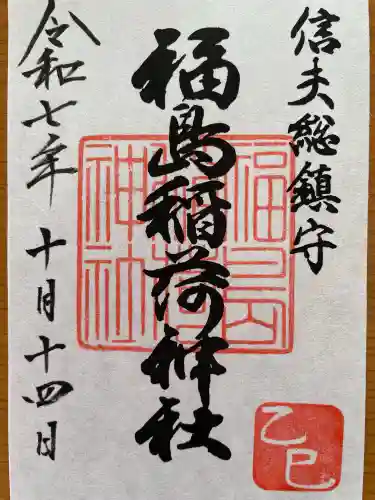 信夫総鎮守
福島稲荷神社
令和七年 十月十四日
福島稲荷神社
乙巳